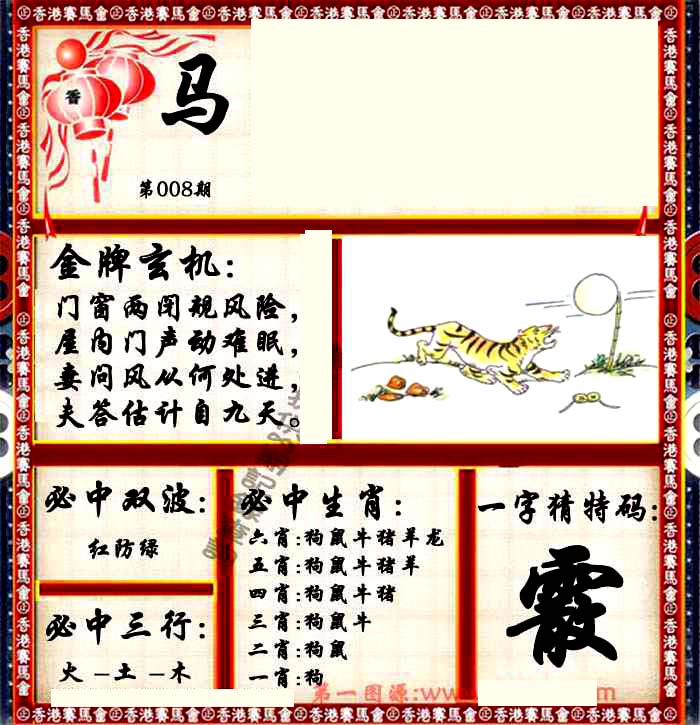 香港賽馬會
香
马
第008期
金牌玄机:
门窗两闭规风险,
屋内门声动难眠,
妻问风从何处进,
夫答估计自九天。
必中双波:
红防绿
必中三行:
火-土-木
必中生肖:
六肖:狗鼠牛猪羊龙
五肖:狗鼠牛猪羊
四肖:狗鼠牛猪
三肖:狗鼠牛
二肖:狗鼠
一肖:狗
一字猜特码:
霰
第一图源:www
m